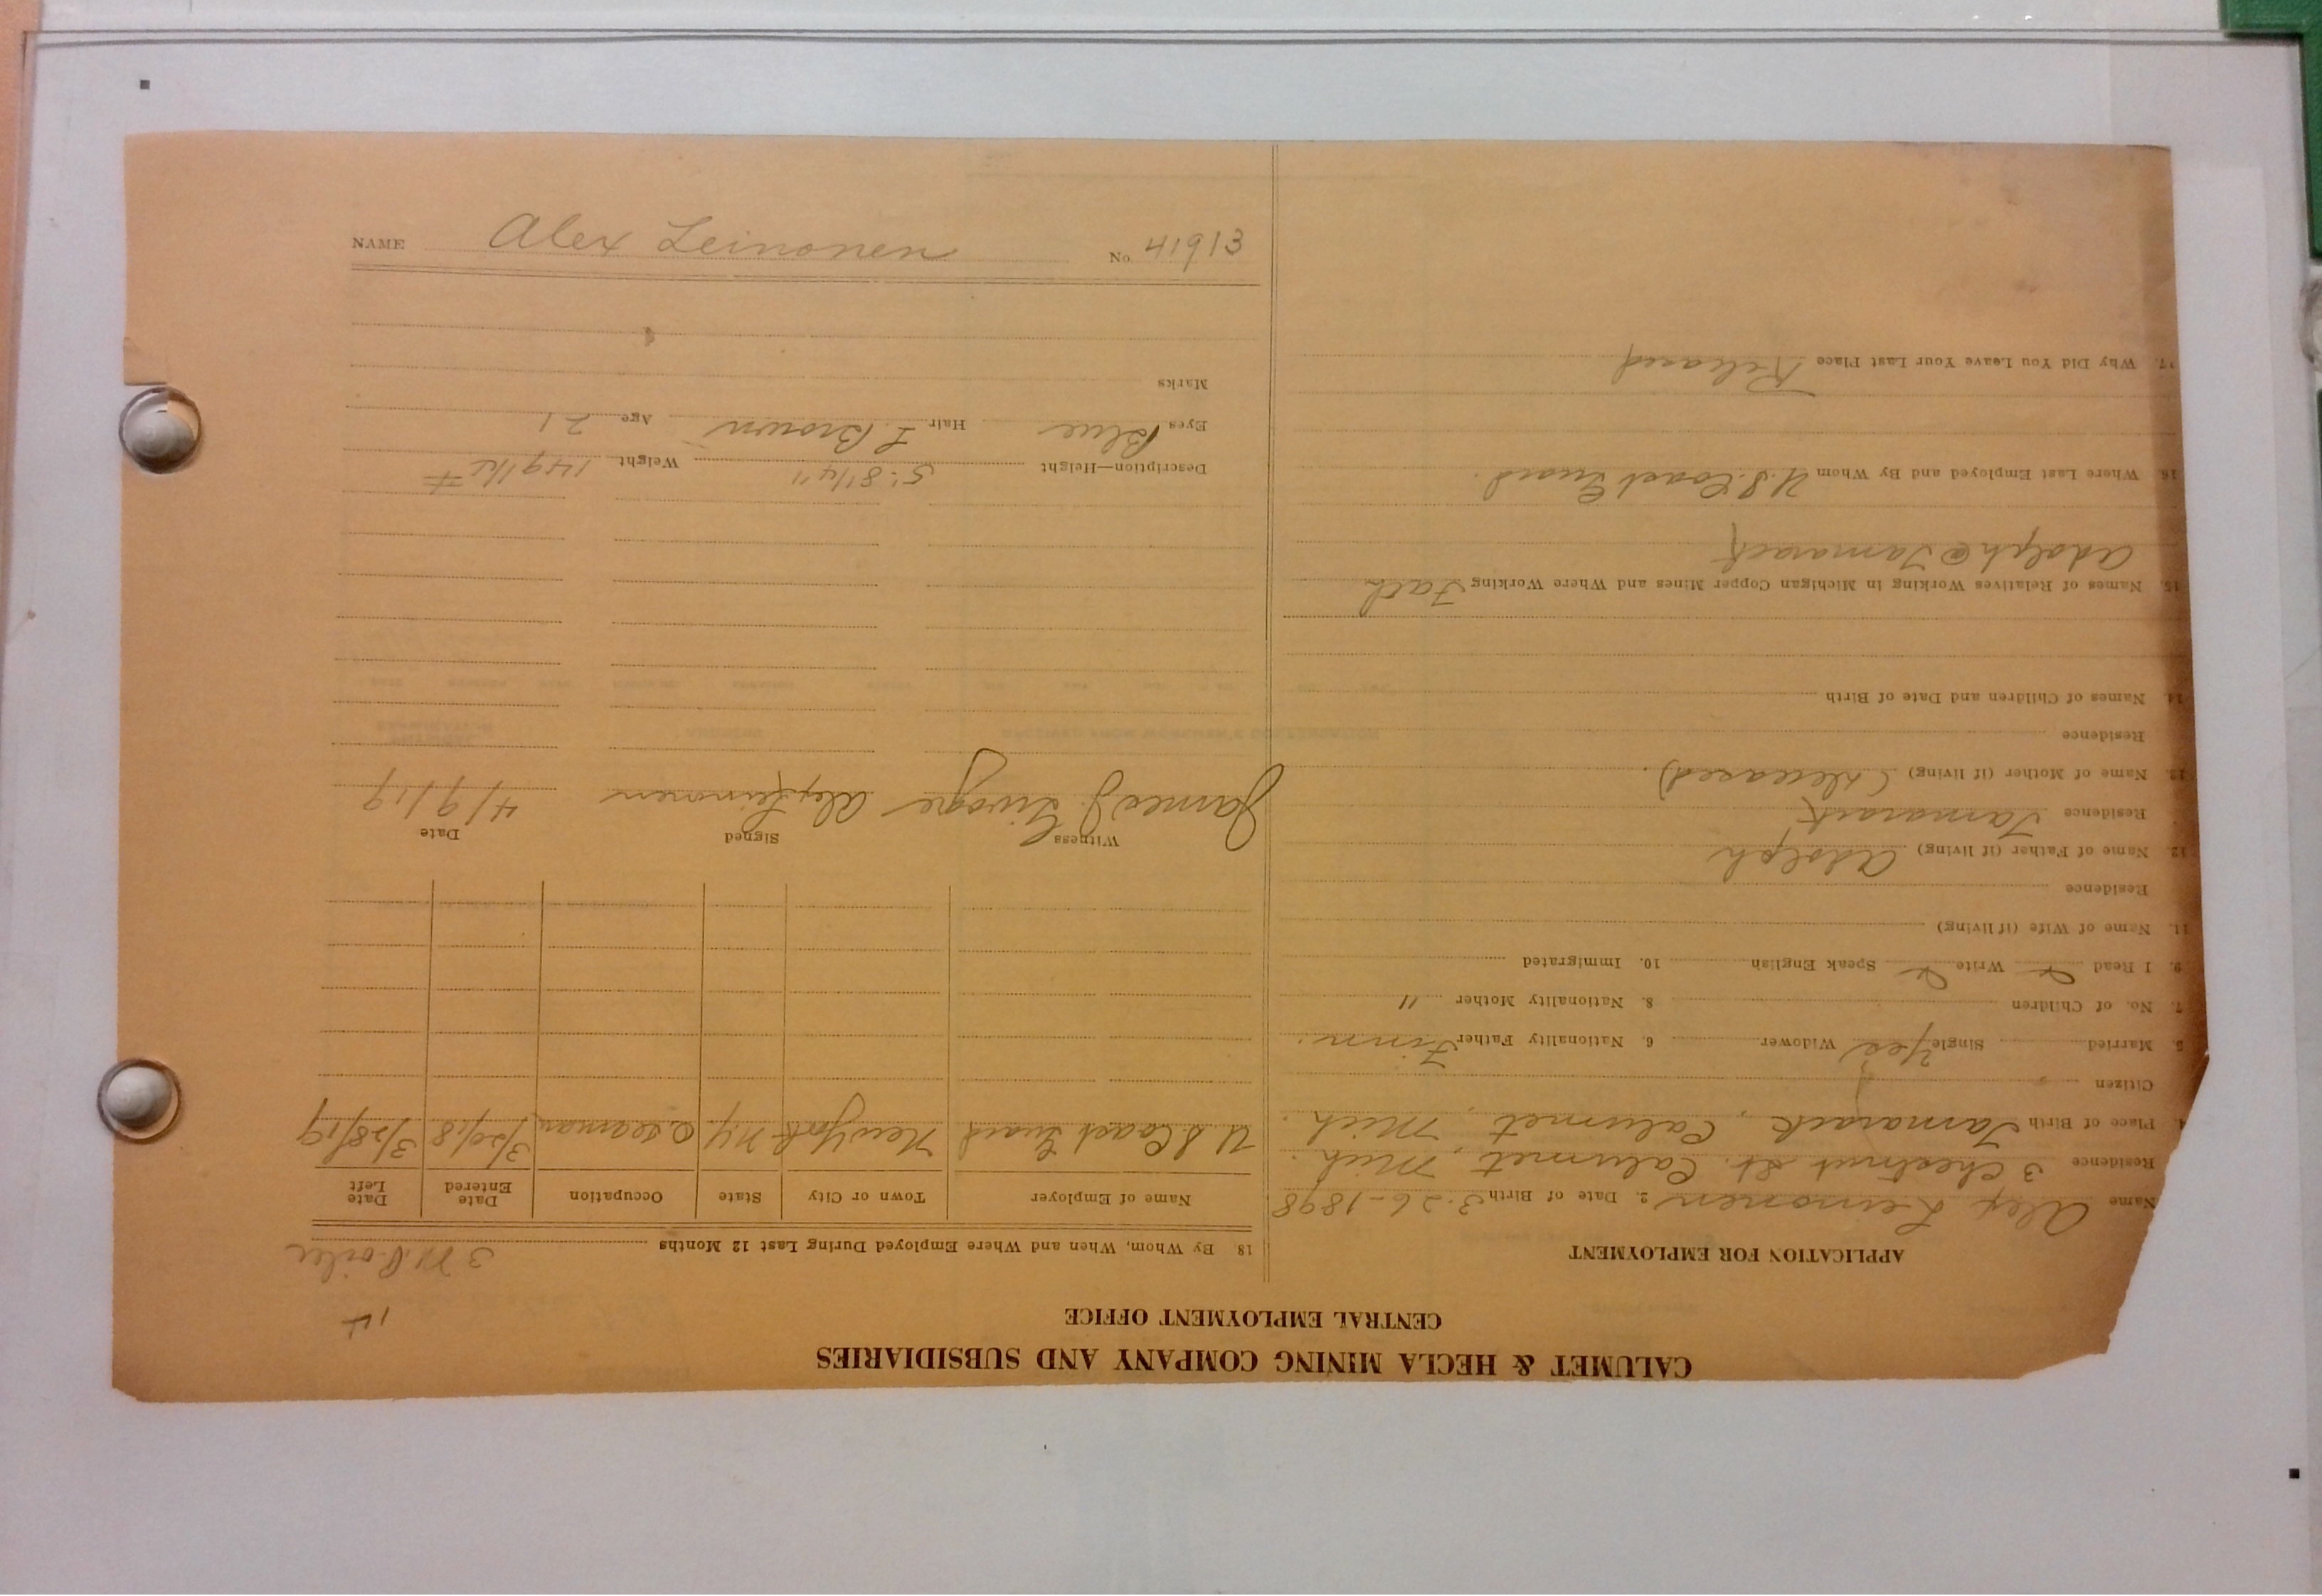 CALUMET & HECLA MINING COMPANY AND SUBSIDIARIES
CENTRAL EMPLOYMENT OFFICE
APPLICATION FOR EMPLOYMENT
Name Alex Leinonen 2. Date of Birth 3-26-1898
Residence 3 Chestnut St. Calumet, Mich.
Place of Birth Tamarack, Calumet, Mich.
Citizen
5. Married Single Yes Widower 6. Nationality Father Finn.
7. No. of Children 8. Nationality Mother "
9. I Read Write Speak English 10. Immigrated
11. Name of Wife (if living)
Residence
12. Name of Father (if living) Adolph
Residence Tamarack
13. Name of Mother (if living) (deceased).
Residence
14. Names of Children and Date of Birth
15. Names of Relatives Working in Michigan Copper Mines and Where Working Fath
Adolph @ Tamarack
16. Where Last Employed and By Whom U.S. Coast Guard.
17. Why Did You Leave Your Last Place Released
14
18 By Whom, When and Where Employed During Last 12 Months
Name of Employer Town or City State Occupation Date Entered Date Left
U S Coast Guard New York N.Y O. Seaman 3/20/18 3/28/19
Witness Signed Date
James J. Alex Leinonen 4/9/19
Description—Height 5'-8 1/4" Weight 149 1/2 #
Eyes Blue Hair L Brown Age 21
Marks
NAME Alex Leinonen No. 41913